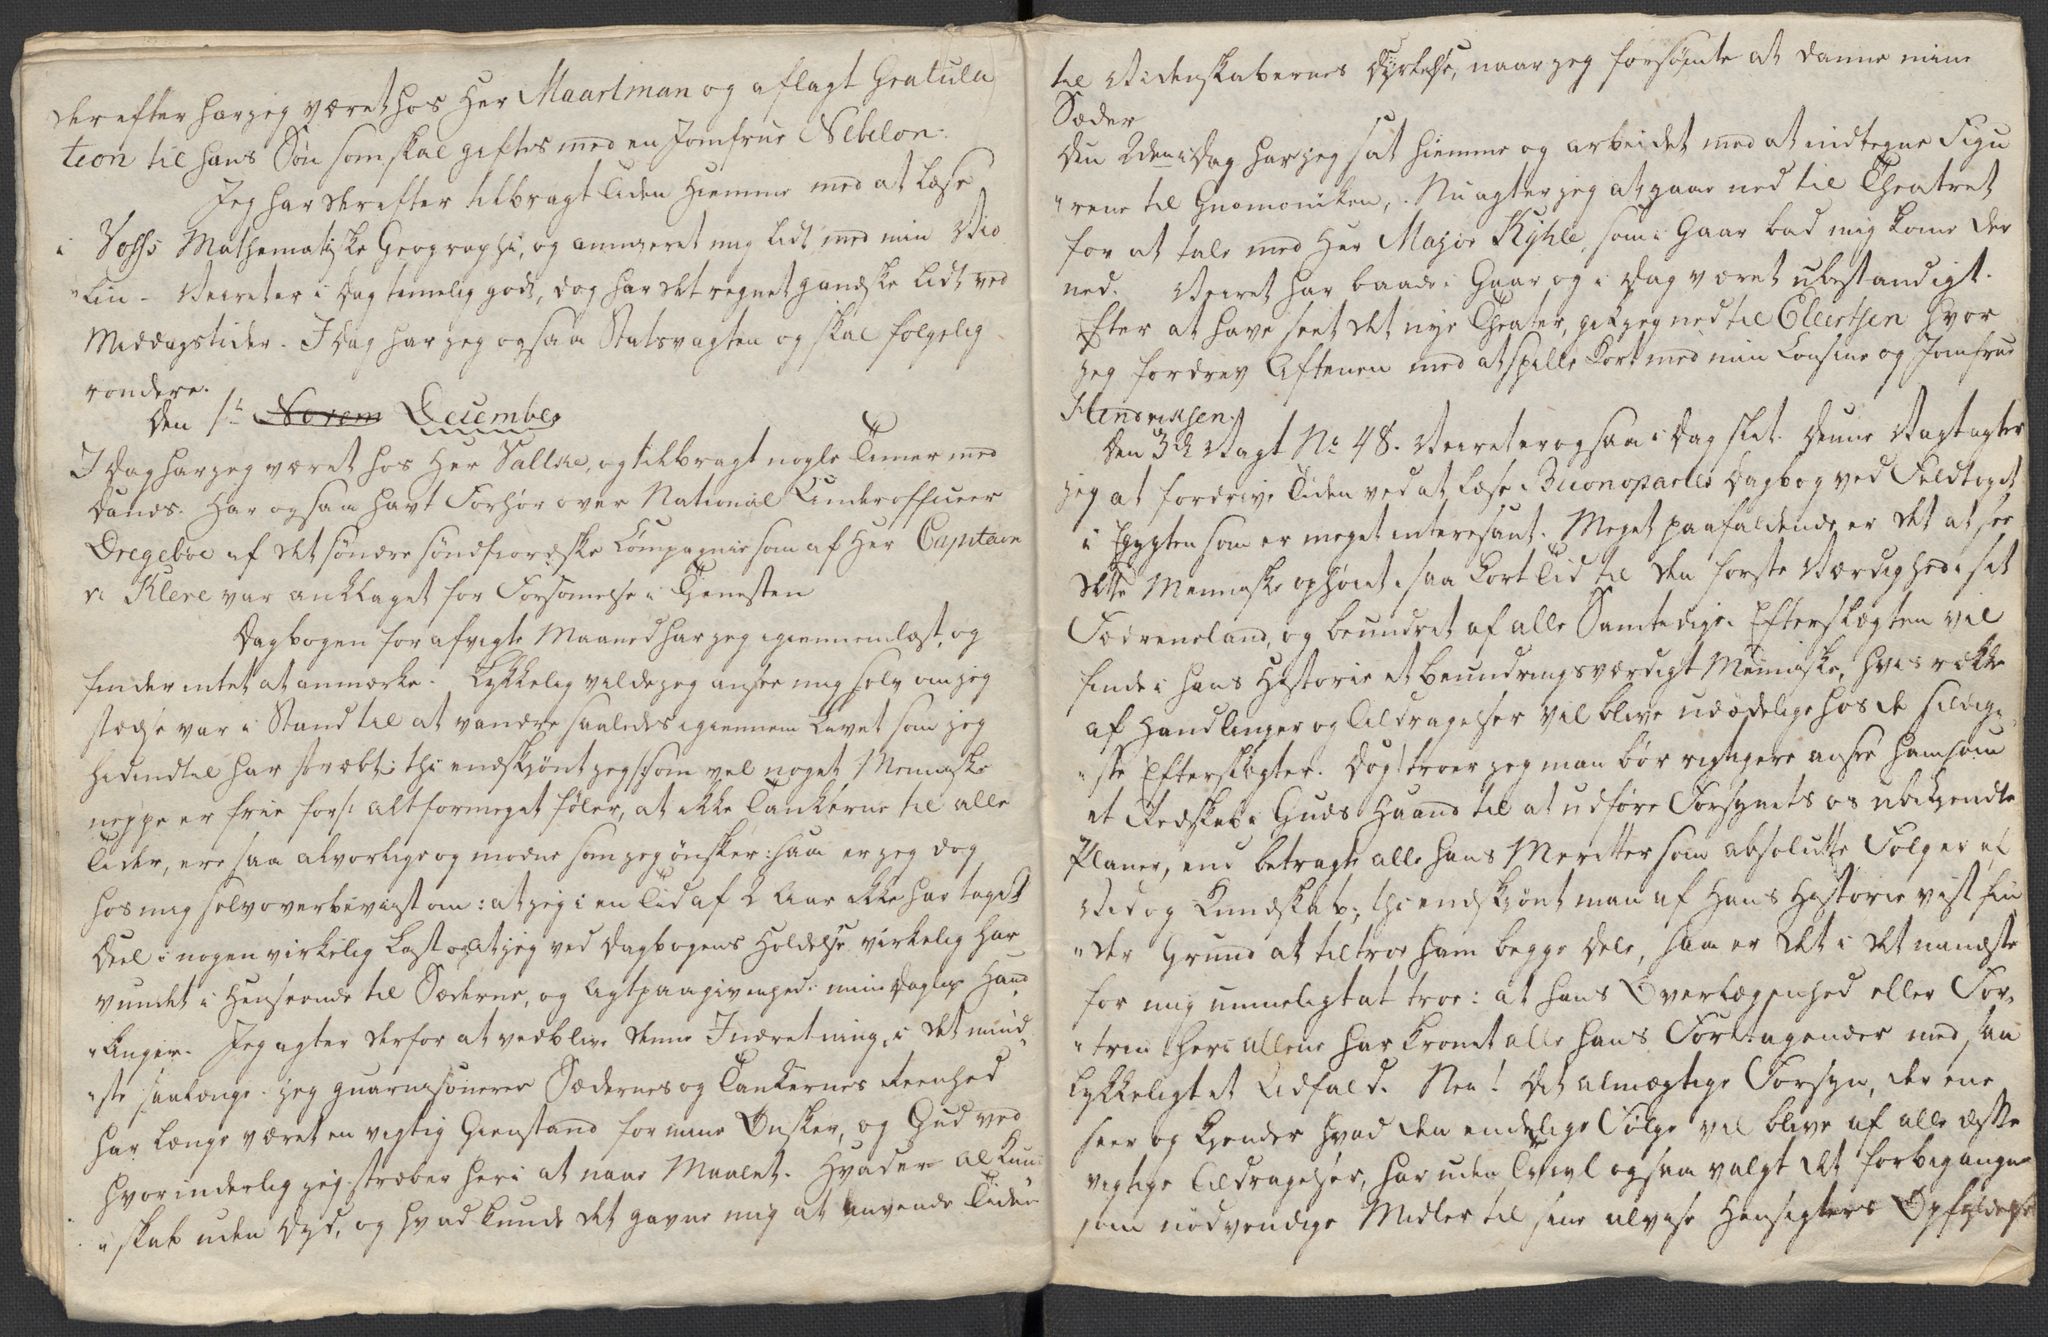 derefter har jeg været hos Her Maartman og aflagt Gratula
tion til hans Søn som skal giftes med en Jomfrue Nebelon.
Jeg har derefter tilbragt Tiden hiemme med at læse
i Vosss Mathematiske Geographi, og amuseret mig lidt med min Vio
"lin - Veiret er i Dag temelig godt, dog har det regnet gandske lidt ved
Middagstider. I Dag har jeg ogsaa Stabsvagten og skal følgelig
rondere.
Den 1te Novem December
I Dag har jeg været hos Her Sallke, og tilbragt nogle Timer med
Dands. Har ogsaa havt Forhør over National Underofficeer
Dregeboe af det søndre søndfiordske Compagnie som af Her Capitain
v: Klere var anklaget for Forsømelse i Tienesten
Dagbogen for afvigte Maaned har jeg igiennemlæst, og
finder intet at anmærke. Lykkelig vilde jeg ansee mig selv om jeg
stædse var i Stand til at vandre saaledes igiennem Livet som jeg
hidindtil har stræbt; thi endskjønt jeg /:som vel noget Menniske
neppe er frie for:/ alt formeget føler, at ikke Tankerne til alle
Tider, ere saa alvorlige og modne som jeg ønsker: saa er jeg dog
hos mig selv overbeviist om: at jeg i en Tid af 2 Aar ikke har taget
Deel i nogen virkelig Last og at jeg ved Dagbogens Holdelse virkelig har
vundet i Henseende til Sæderne, og Agtpaagivenhed i mine daglige Hand
"linger. Jeg agter derfor at vedblive denne Indretning, i det mind
"ste saalænge jeg guarnisonerer Sædernes og Tankernes Reenhed
har længe været en vigtig Gienstand for mine Ønsker, og Gud ved
hvor inderlig jeg stræber heri at naae Maalet. Hvad er al Kund
"skab uden Dyd, og hvad kunde det gavne mig at anvende Tiden
til Videnskabernes Dyrkelse, naar jeg forsømte at danne mine
Sæder
Den 2den i Dag har jeg sat hiemme og arbeidet med at indtegne Figu
"rene til Gnomoniken, . Nu agter jeg at gaae ned til Theatret
for at tale med Her Major Kyhle, som i Gaar bad mig kome der
ned. Veiret har baade i Gaar og i Dag været ubestandigt.
Efter at have seet det nye Theater, gik jeg ned til Ellertsen hvor
jeg fordrev Aftenen med at spille Kort med min Cousine og Jomfrue
Hendriksen.
Den 3de Vagt No 48. Veiret er ogsaa i Dag slet. Denne Vagt agter
jeg at fordrive Tiden ved at læse Buonopartes Dagbog ved Feldtoget
i Egypten som er meget interesant. Meget paafaldende er det at see
dette Menniske ophøiet i saa kort Tid til den første Værdighed i sit
Fødreneland, og beundret af alle Samtidige. Efterslægten vil
finde i hans Historie et beundringsværdigt Menniske, hvis række
af Handlinger og Tildragelser vil blive udødelige hos de sildig
"ste Efterslægter. Dog troer jeg man bør rigtigere ansee ham som
et Redskab i Guds Haand til at udføre Forsynets os ubekjendte
Planer, end betragte alle hans Meritter som absolutte Følger af
Vid og Kundskab; thi endskjønt man af Hans Historie vist fin
"der Grund at tiltroe ham begge dele, saa er det i det mindste
for mig umueligt at troe: at hans Overlægenhed eller For,
"trin heri allene har kronet alle hans Foretagender med saa
lykkeligt et Udfald. Nei! Det almægtige Forsyn, der ene
seer og kjender hvad den endelige Følge vil blive af alle disse
vigtige Tildragelser, har uden Tvivl ogsaa valgt det forbigangne
som nødvendige Midler til sine alvise Hensigters Opfyldelse